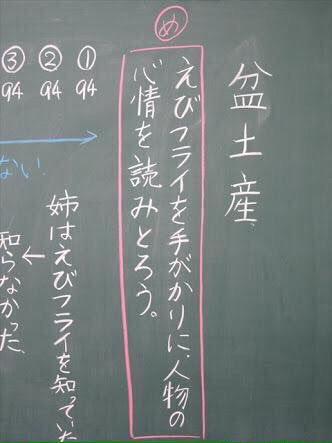 盆土産
め
えびフライを手がかりに、人物の
心情を読みとろう。
① ② ③
94 94 94
ない
姉はえびフライを知っていた
←
知らなかった